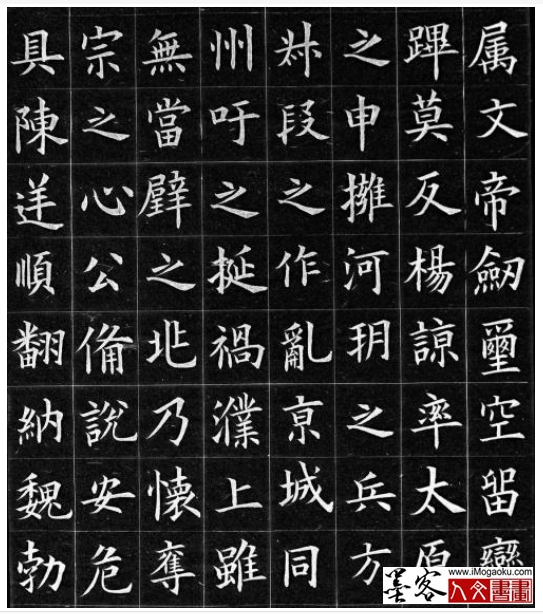 属文帝劒璽空留
蹕莫反楊諒率太原
之甲擁河朔之兵方
叔段之作亂京城同
州吁之挻禍濮上雖
無當璧之兆乃懷奪
宗之心公備說安危
具陳逆順翻納魏勃
www.iMogaoku.com
墨客
人文書畫